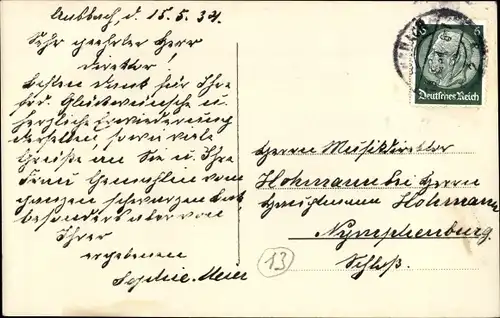 Ansbach, d. 15.5.34.
Sehr geehrter Herr
Direktor!
Besten Dank für Ihre
frd. Glückwünsche u.
herzliche Erwiederung
derselben sowie viele
Grüße an Sie u. Ihre
Frau Gemahlin vom
ganzen
besonders aber von
Ihrer
ergebenen
Sophie Meier
6
Deutsches Reich
Herrn Musikdirektor
Hohmann bei Herrn
Hauptmann Hohmann
Nymphenburg
Schloß.
13